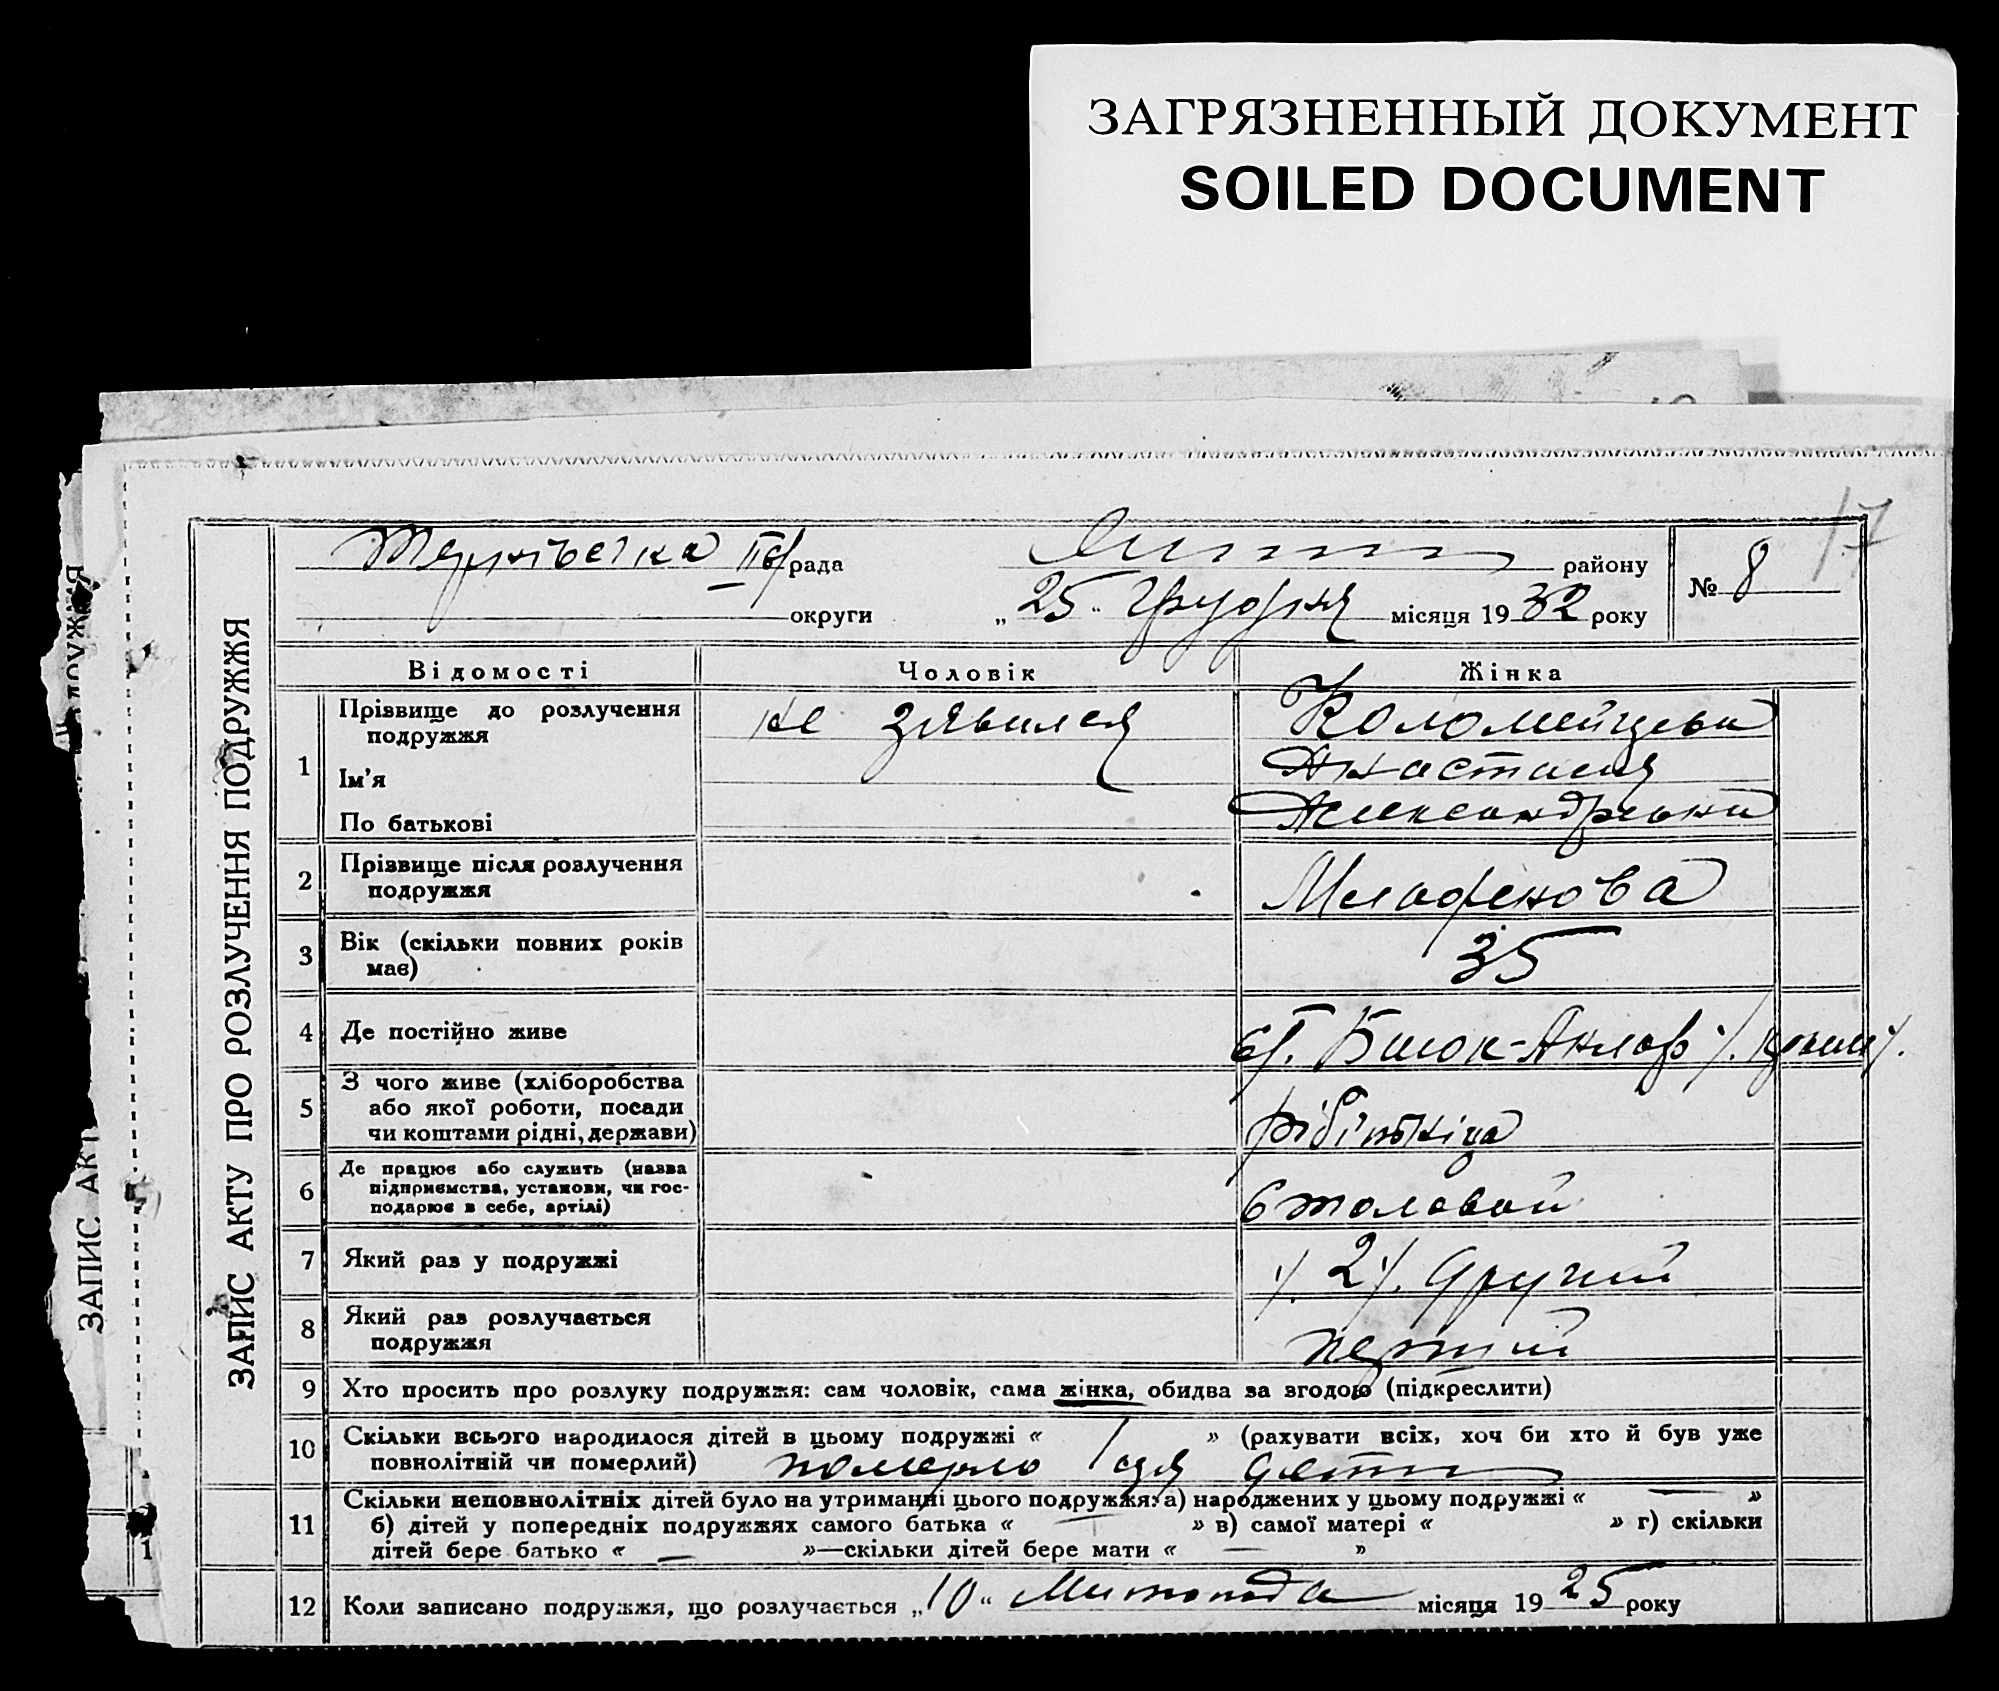 ЗАГРЯЗНЕННЫЙ ДОКУМЕНТ
SOILED DOCUMENT
17
рада району № 8
округи „ 25 " Грудня місяця 19 32 року
ЗАПИС АКТУ ПРО РОЗЛУЧЕННЯ ПОДРУЖЖЯ
Відомості Чоловік Жінка
1 Прізвище до розлучення подружжя не зявился Коломейцева
Ім'я Анастасия
По батькові Александровна
2 Прізвище після розлучення
подружжя
3 Вік (скільки повних років 35
має)
4 Де постійно живе ст.
5 З чого живе (хліборобства
або якої роботи, посади
чи коштами рідні, держави)
6 Де працює або служить (назва
підприємства, установи, чи гос-
подарює в себе, артілі) Столовой
7 Який раз у подружжі /. 2 /. другий
8 Який раз розлучається
подружжя перший
9 Хто просить про розлуку подружжя: сам чоловік, сама жінка, обидва за згодою (підкреслити)
10 Скільки всього народилося дітей в цьому подружжі « » (рахувати всіх, хоч би хто й був уже
повнолітній чи померлий) померло
11 Скільки неповнолітніх дітей було на утриманні цього подружжя: а) народжених у цьому подружжі « — »
б) дітей у попередніх подружжях самого батька « — » в) самої матері « » г) скільки
дітей бере батько « — »—скільки дітей бере мати « — »
12 Коли записано подружжя, що розлучається „ 10 " Листопада місяця 19 25 року
ЗАПИС АКТ
1